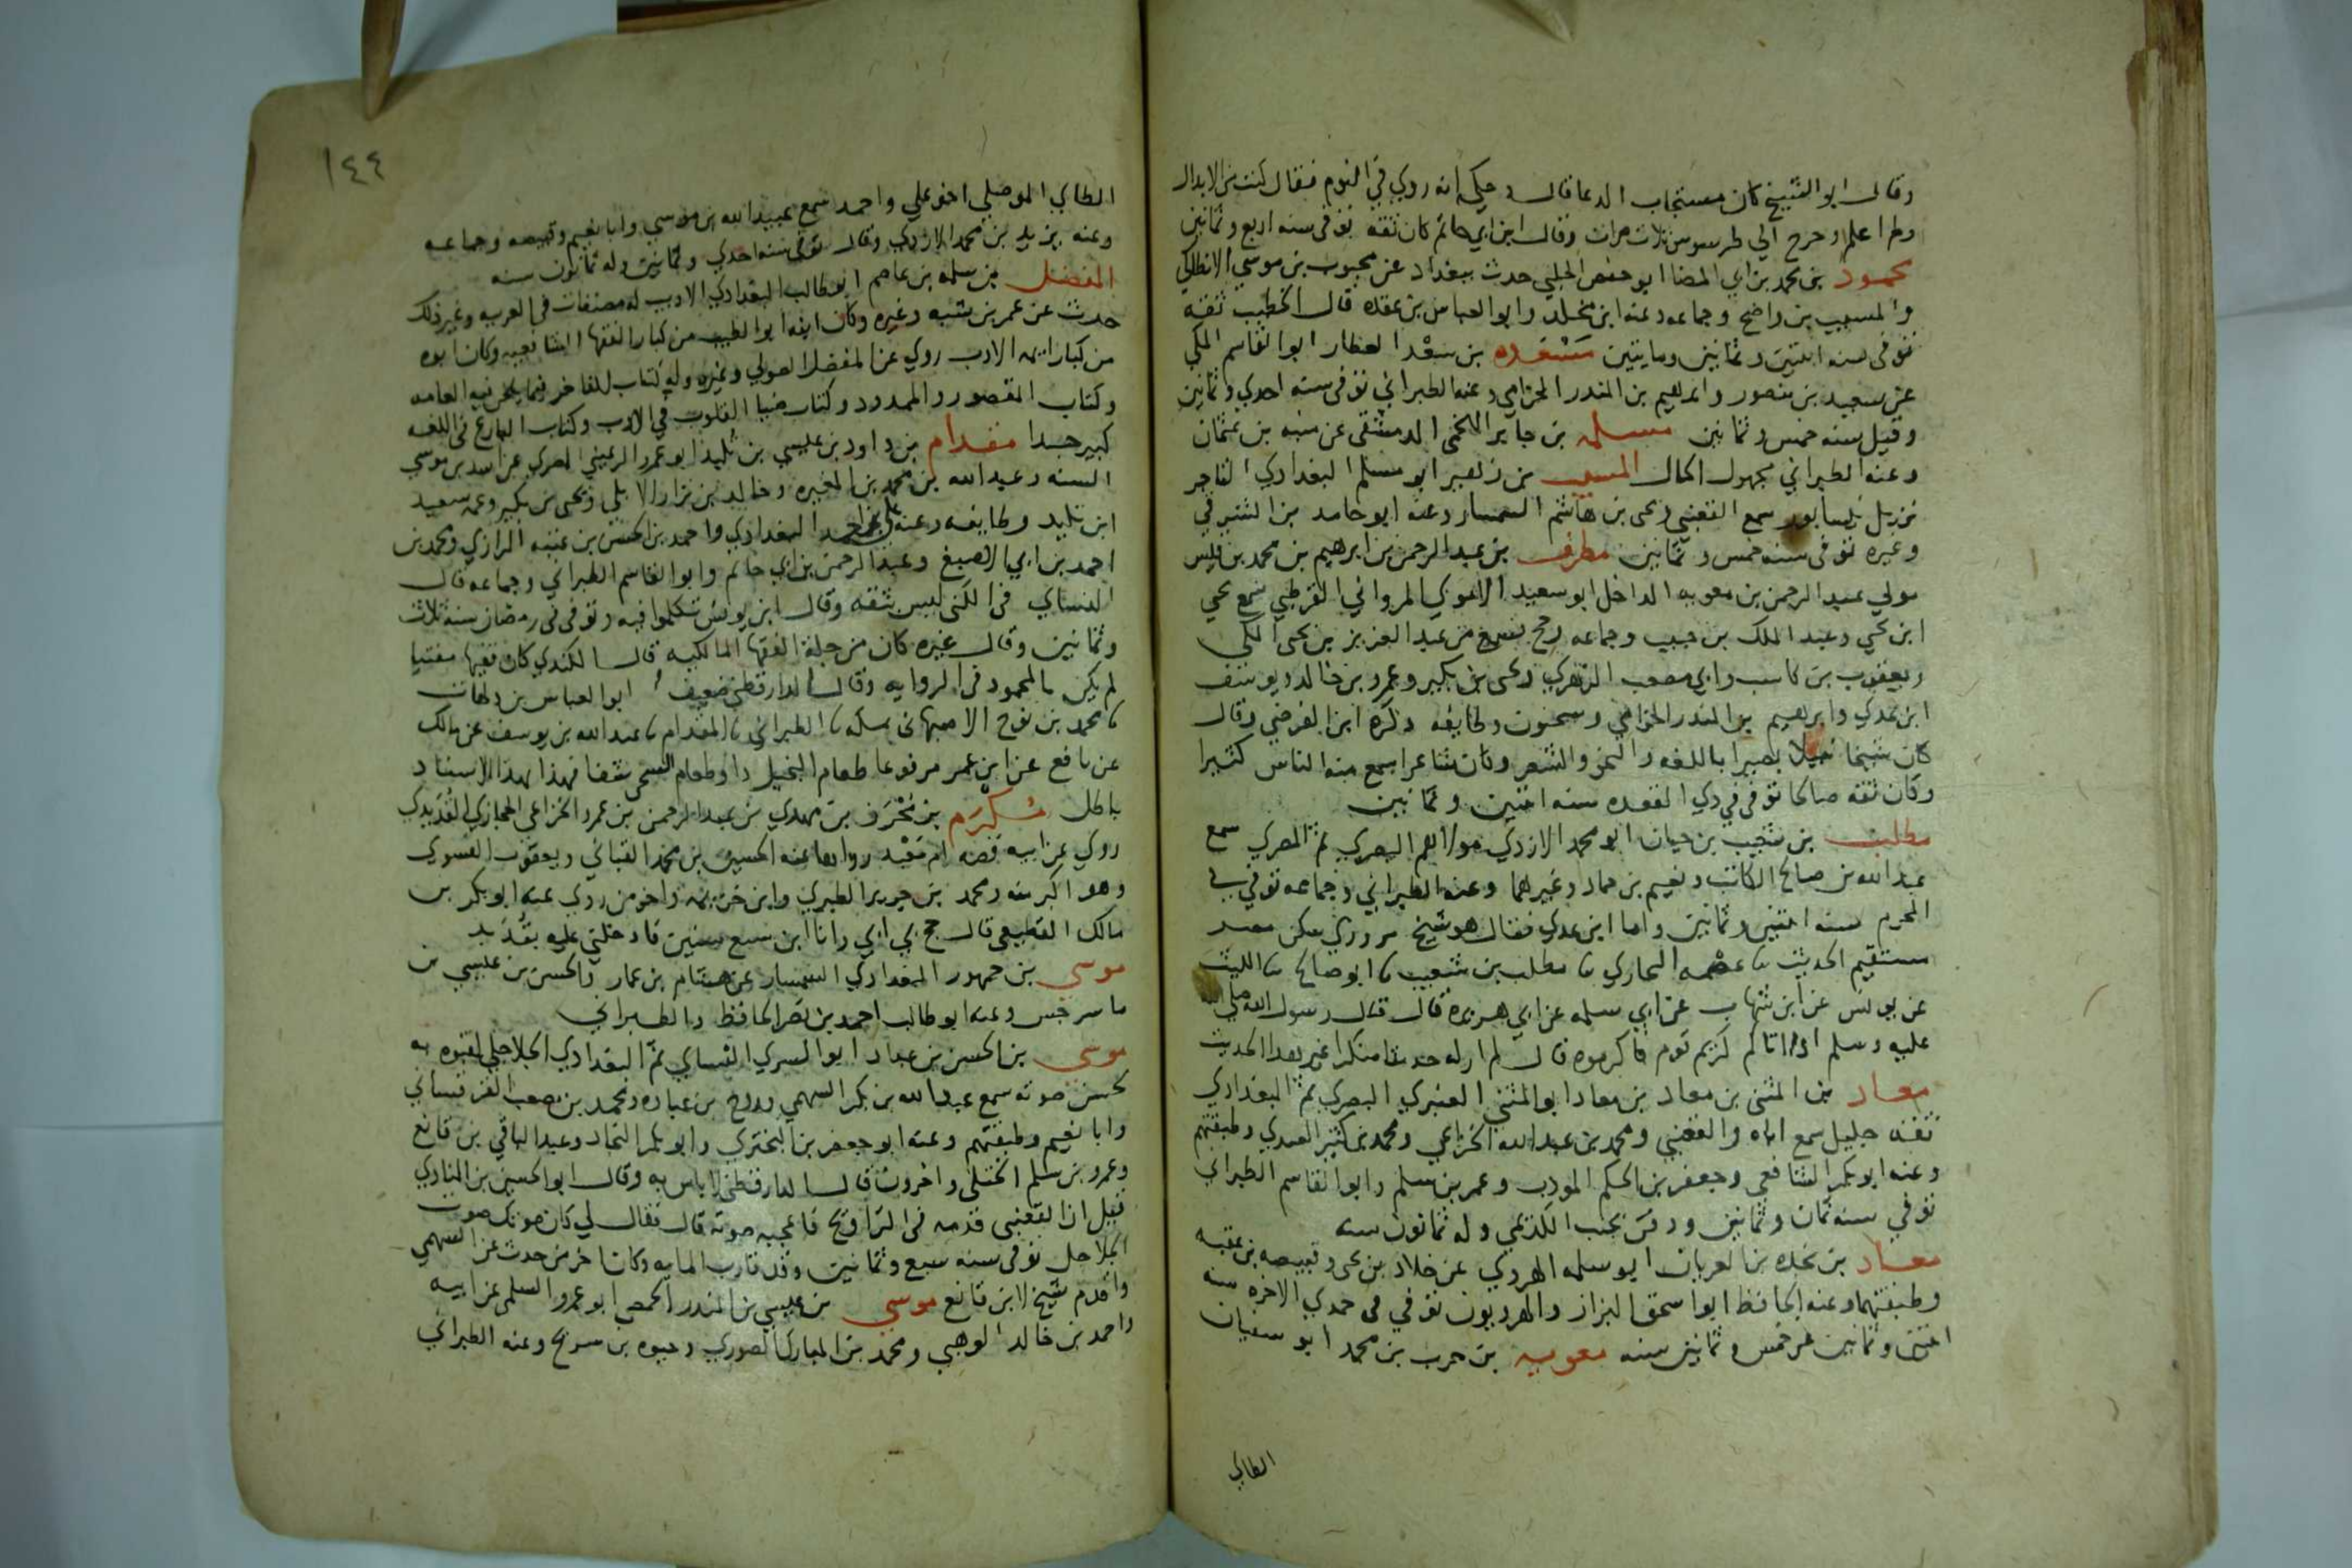 وقال ابو الشيخ كان مستجاب الدعا قال وحكي انه روي في النوم فقال كنت من الابدال
ولم اعلم وخرج الي طرسوس ثلاث مرات وقال ابن ابي حاتم كان ثقة توفي سنه اربع وثمانين
محمود بن محمد بن ابي المضا ابو حفص الحلبي حدث ببغداد عن محبوب بن موسي الانطاكي
والمسيب بن واضح وجماعه وعنه ابن مخلد وابو العباس بن عقده قال الخطيب ثقه
توفي سنه اثنتين وثمانين ومايتين مسعده بن سعد العطار ابو القاسم المكي
عن سعيد بن منصور وابرهيم بن المنذر الحزامي وعنه الطبراني توفي سنه احدي وثمانين
وقيل سنه خمس وثمانين مسلمه بن جابر اللخمي الدمشقي عن منبه بن عثمان
وعنه الطبراني مجهول الحال المسيب بن زهير ابو مسلم البغدادي التاجر
نزيل نيسابور سمع القعنبي ويحي بن هاشم السمسار وعنه ابو حامد بن الشرقي
وغيره توفي سنه خمس وثمانين مطرف بن عبد الرحمن بن ابرهيم بن محمد بن قيس
مولي عبد الرحمن بن معويه الداخل ابو سعيد الاموي المرواني القرطبي سمع يحي
ابن يحي وعبد الملك بن حبيب وجماعه وحج فسمع من عبد العزيز بن يحي المكي
ويعقوب بن كاسب وابي مصعب الزهري ويحي بن بكير وعمرو بن خالد ويوسف
ابن عدي وابرهيم بن المنذر الحزامي وسحنون وطايفه ذكره ابن الفرضي وقال
كان شيخا نبيلا بصيرا باللغه والنحو والشعر وكان شاعرا سمع منه الناس كثيرا
وكان ثقه صالحا توفي في ذي القعده سنه اثنتين وثمانين
مطلب بن شعيب بن حيان ابو محمد الازدي مولاهم البصري ثم المصري سمع
عبد الله بن صالح الكاتب ونعيم بن حماد وغيرهما وعنه الطبراني وجماعه توفي في
المحرم سنه اثنتين وثمانين واما ابن عدي فقال هو شيخ مروزي سكن مصر
مستقيم الحديث ثنا عصمه البخاري ثنا مطلب بن شعيب ثنا ابو صالح ثنا الليث
عن يونس عن ابن شهاب عن ابي سلمه عن ابي هريره قال قال رسول الله صلي الله
عليه وسلم اذا اتاكم كريم قوم فاكرموه قال لم ار له حديثا منكرا غير هذا الحديث
معاذ بن المثني بن معاذ بن معاذ ابو المثني العنبري البصري ثم البغدادي
ثقه جليل سمع اباه والقعنبي ومحمد بن عبد الله الخزاعي ومحمد بن كثير العبدي وطبقتهم
وعنه ابو بكر الشافعي وجعفر بن الحكم المودب وعمر بن سلم وابو القاسم الطبراني
توفي سنه ثمان وثمانين ودفن بجنب الكديمي وله ثمانون سنه
معاذ بن نجده بن العريان ابو سلمه الهروي عن خلاد بن يحي وقبيصه بن عقبه
وطبقتهما وعنه الحافظ ابو اسحق البزاز والهرويون توفي في جمدي الاخره سنه
اثنتين وثمانين عن خمس وثمانين سنه معويه بن حرب بن محمد ابو سفيان
الطاي
١٤٤
الطاي الموصلي اخو علي واحمد سمع عبيد الله بن موسي وابا نعيم وقبيصه وجماعه
وعنه يزيد بن محمد الازدي وقال توفي سنه احدي وثمانين وله ثمانون سنه
المفضل بن سلمه بن عاصم ابو طالب البغدادي الاديب له مصنفات في العربيه وغير ذلك
حدث عن عمر بن شبه وغيره وكان ابنه ابو الطيب من كبار الفقها الشافعيه وكان ابوه
من كبار ايمه الادب روي عن المفضل الصولي وغيره وله كتاب الفاخر فيما يلحن فيه العامه
وكتاب المقصور والممدود وكتاب ضيا القلوب في الادب وكتاب البارع في اللغه
كبير جدا مقدام بن داود بن عيسي بن تليد ابو عمرو الرعيني المصري عن اسد بن موسي
السنه وعبد الله بن محمد بن المغيره وخالد بن نزار الايلي ويحي بن بكير وعمه سعيد
ابن تليد وطايفه وعنه علي بن احمد البغدادي واحمد بن الحسن بن عتبه الرازي ومحمد بن
احمد بن ابي الاصبغ وعبد الرحمن بن ابي حاتم وابو القاسم الطبراني وجماعه قال
النساي في الكني ليس بثقه وقال ابن يونس تكلموا فيه وتوفي في رمضان سنه ثلاث
وثمانين وقال غيره كان من جله الفقها المالكيه قال الكندي كان فقيها مفتيا
لم يكن بالمحمود في الروايه وقال الدارقطني ضعيف ابو العباس بن دلهاث
ثنا محمد بن نوح الاصبهاني بمكه ثنا الطبراني ثنا المقدام ثنا عبد الله بن يوسف عن مالك
عن نافع عن ابن عمر مرفوعا طعام البخيل دا وطعام السخي شفا فهذا بهذا الاسناد
باطل مكرم بن محرز بن مهدي بن عبد الرحمن بن عمرو الخزاعي الحجازي القديدي
روي عن ابيه قصه ام معبد رواها عنه الحسين بن محمد القباني ويعقوب الفسوي
وهو اكبر منه ومحمد بن جرير الطبري وابن خزيمه واخر من روي عنه ابو بكر بن
مالك القطيعي قال حج بي ابي وانا ابن سبع سنين فادخلني عليه بقديد
موسي بن جمهور البغدادي السمسار عن هشام بن عمار والحسن بن عيسي بن
ماسرجس وعنه ابو طالب احمد بن نصر الحافظ والطبراني
موسي بن الحسن بن عباد ابو السري النساي ثم البغدادي الجلاجلي لقبوه به
لحسن صوته سمع عبد الله بن بكر السهمي وروح بن عباده ومحمد بن مصعب القرقساني
وابا نعيم وطبقتهم وعنه ابو جعفر بن البختري وابو بكر النجاد وعبد الباقي بن قانع
وعمر بن سلم الختلي واخرون قال الدارقطني لا باس به وقال ابو الحسين بن المنادي
قيل ان القعنبي قدمه في التراويح فاعجبه صوته قال فقال لي كان صوتك صوت
الجلاجل توفي سنه سبع وثمانين وقد قارب المايه وكان اخر من حدث عن السهمي
واقدم شيخ لابن قانع موسي بن عيسي بن المنذر الحمصي ابو عمرو السلمي عن ابيه
واحمد بن خالد الوهبي ومحمد بن المبارك الصوري وحيوه بن سريج وعنه الطبراني